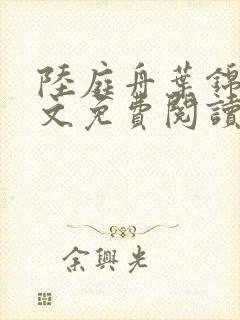 陸庭舟葉錦
文免費閱讀
余興光